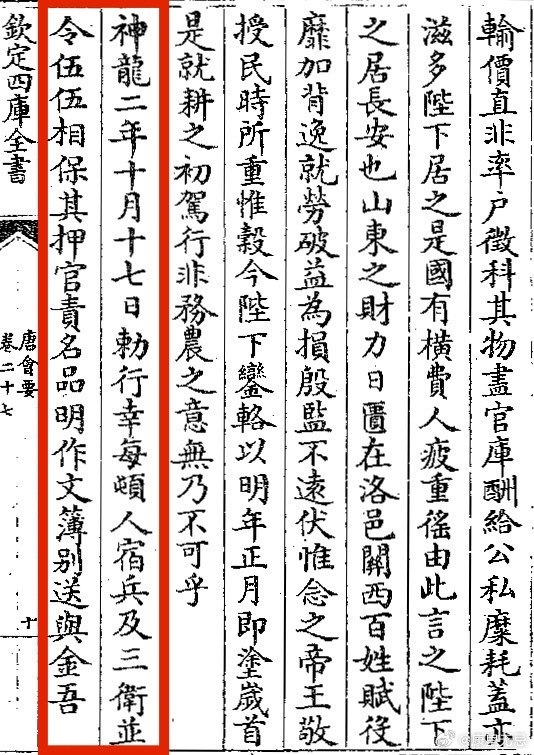 輸價直非率戶徵科其物盡官庫酬給公私糜耗蓋亦
滋多陛下居之是國有横費人疲重徭由此言之陛下
之居長安也山東之財力日匱在洛邑關西百姓賦役
靡加背逸就勞破益為損殷監不遠伏惟念之帝王敬
授民時所重惟榖今陛下鑾輅以明年正月即塗歲首
是就耕之初駕行非務農之意無乃不可乎
神龍二年十月十七日勅行幸每頓人宿兵及三衛並
令伍伍相保其押官責名品明作文簿别送與金吾
欽定四庫全書
唐會要
卷二十七
十